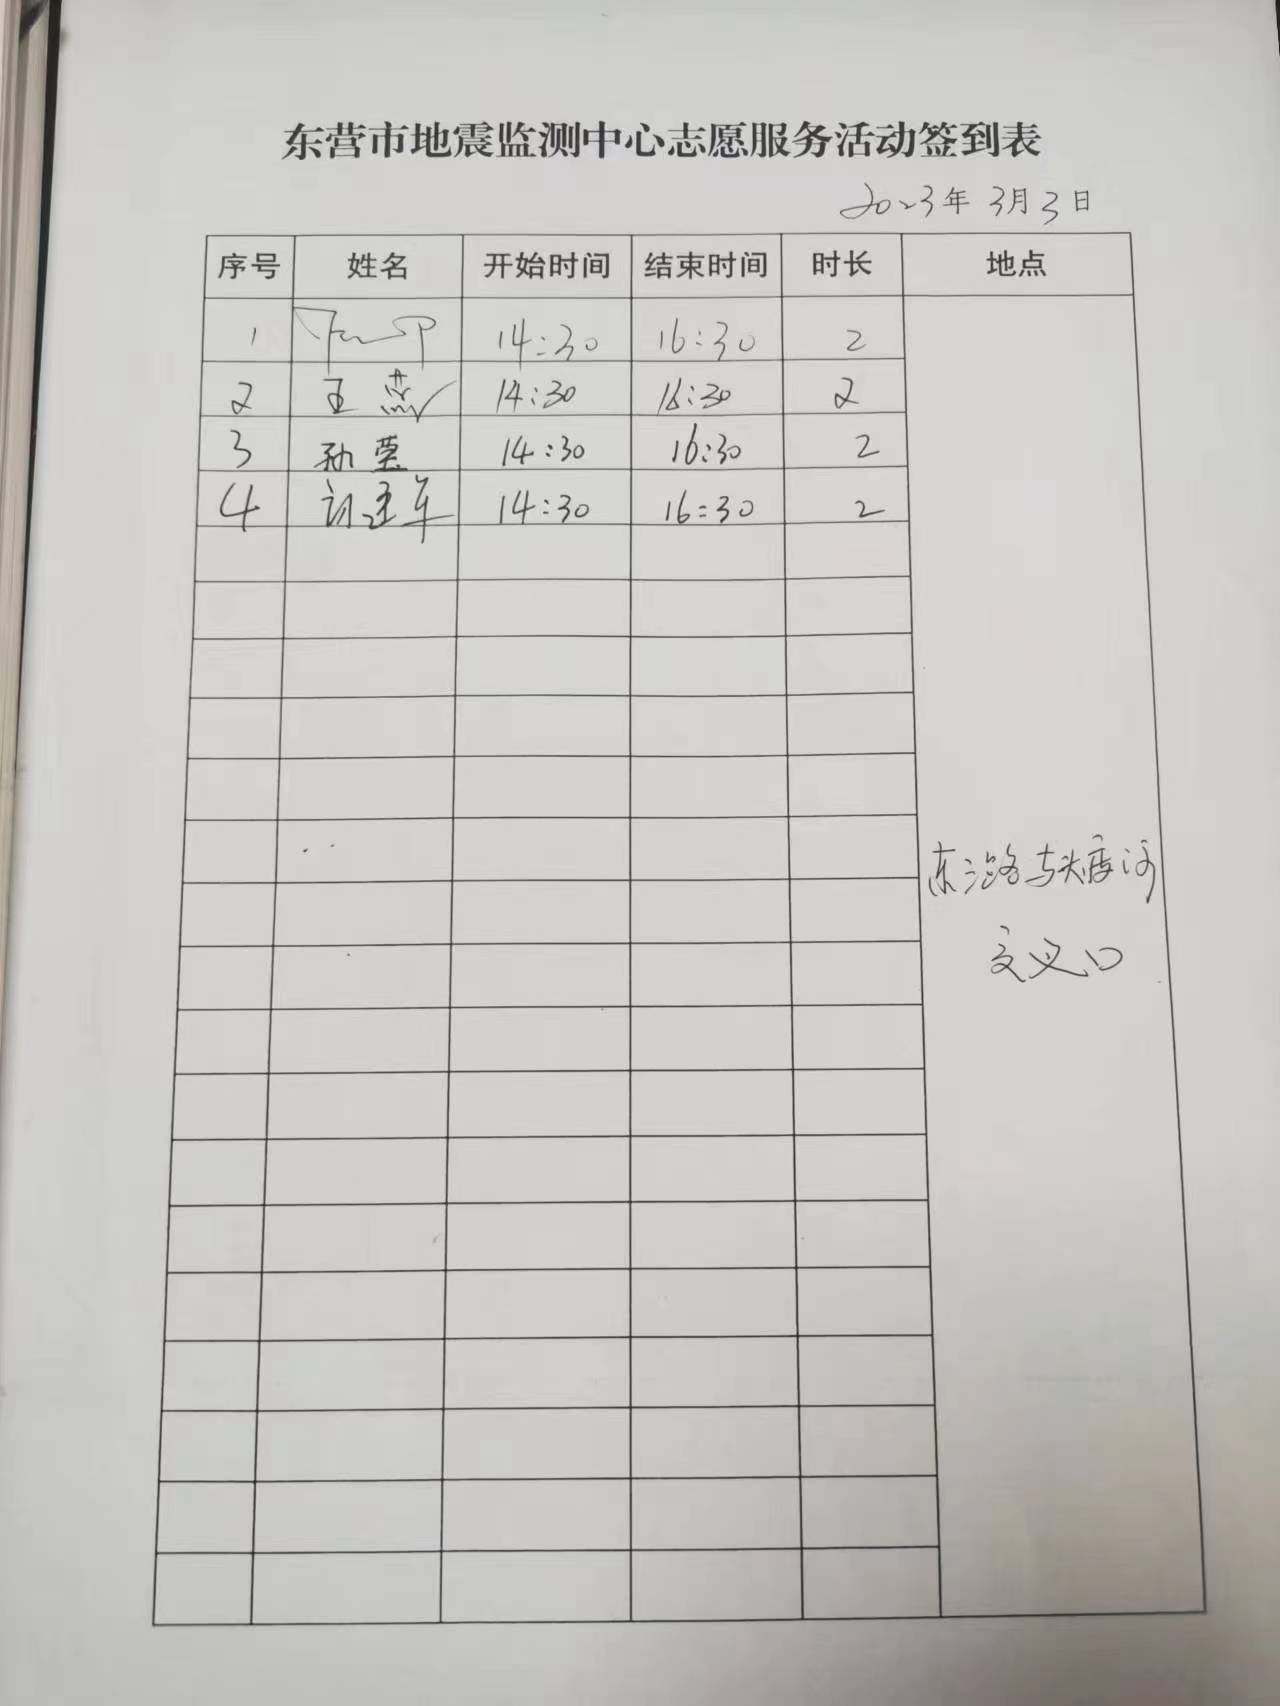 东营市地震监测中心志愿服务活动签到表
2023年 3月3日
序号 姓名 开始时间 结束时间 时长 地点
1 14:30 16:30 2
2 王燕 14:30 16:30 2
3 孙 14:30 16:30 2
4 建军 14:30 16:30 2
东三路与头度河
交叉口